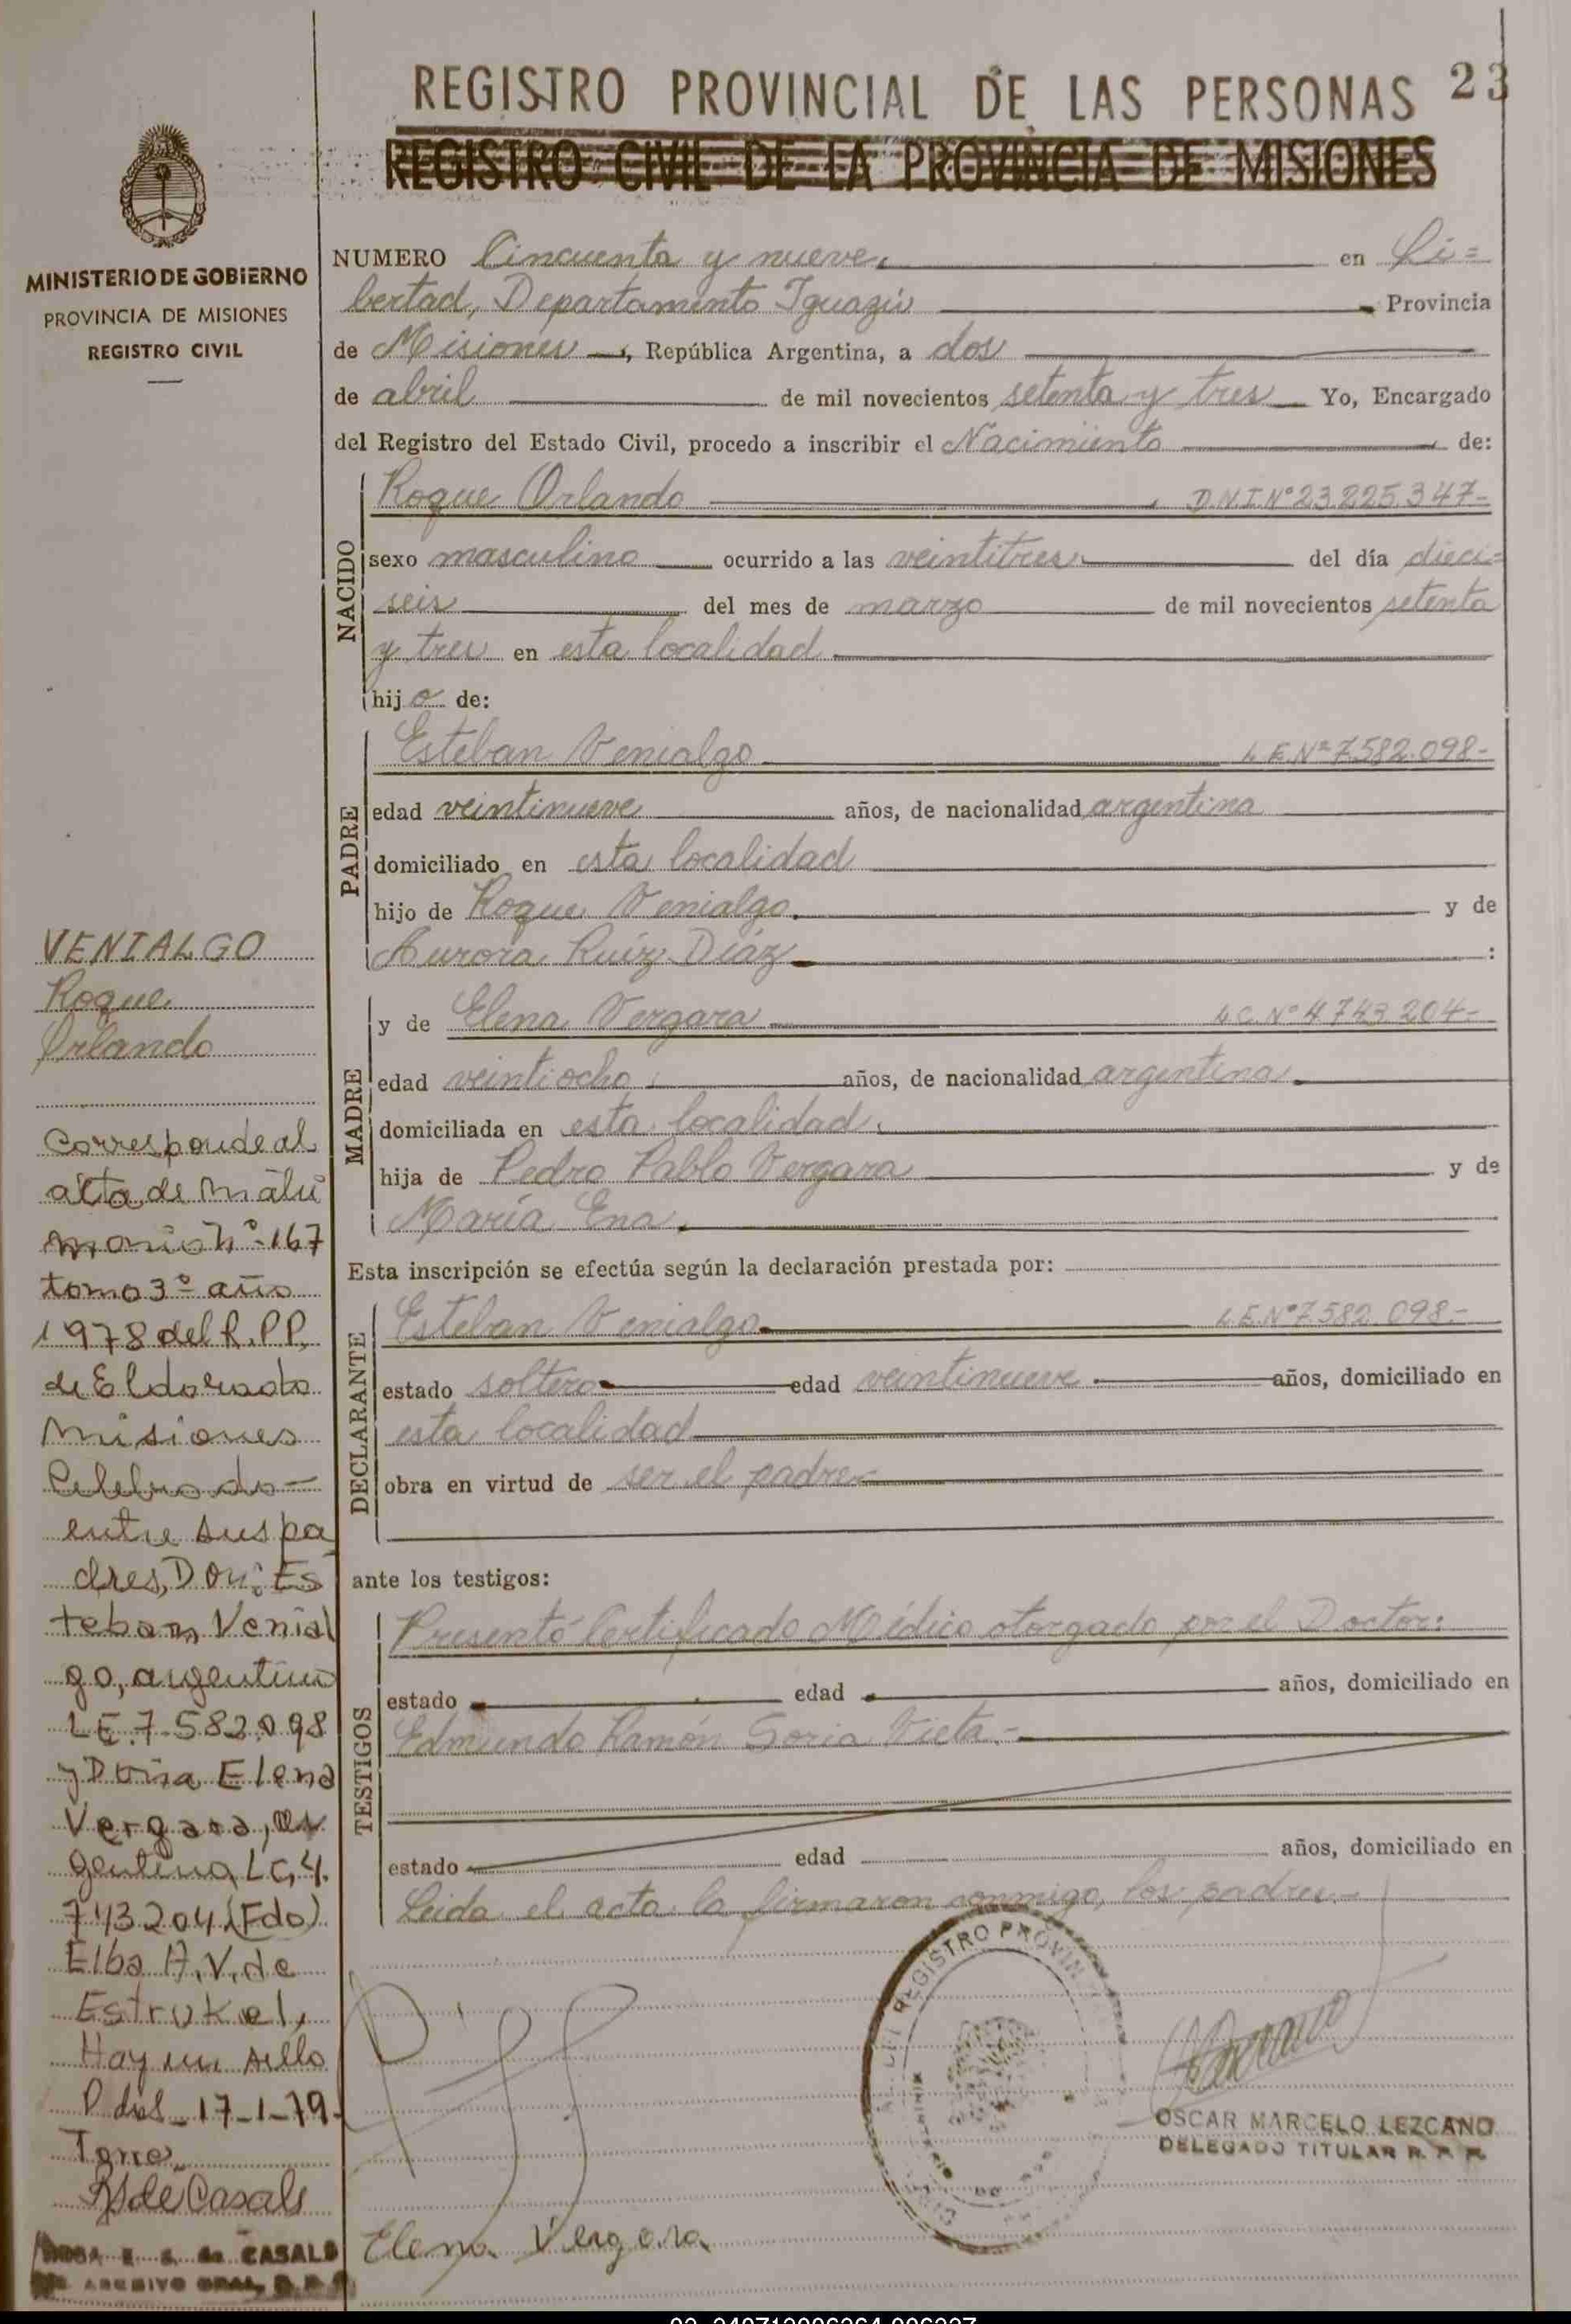 REGISTRO PROVINCIAL DE LAS PERSONAS 23
REGISTRO CIVIL DE LA PROVINCIA DE MISIONES
MINISTERIO DE GOBIERNO
PROVINCIA DE MISIONES
REGISTRO CIVIL
NUMERO Cincuenta y nueve. en Li=
bertad, Departamento Iguazú Provincia
de Misiones, República Argentina, a dos
de abril de mil novecientos setenta y tres Yo, Encargado
del Registro del Estado Civil, procedo a inscribir el Nacimiento de:
NACIDO
Roque Orlando D.N.I.Nº23.225.347-
sexo masculino ocurrido a las veintitres del día dieci=
seis del mes de marzo de mil novecientos setenta
y tres en esta localidad
hijo de:
PADRE
Esteban Venialgo L.E.Nº7.582.098-
edad veintinueve años, de nacionalidad argentina
domiciliado en esta localidad
hijo de Roque Venialgo. y de
Aurora Ruíz Díaz :
MADRE
y de Elena Vergara L.C.Nº4.743.204-
edad veintiocho años, de nacionalidad argentina.
domiciliada en esta localidad.
hija de Pedro Pablo Vergara y de
María Ena.
Esta inscripción se efectúa según la declaración prestada por:
DECLARANTE
Esteban Venialgo L.E.Nº7.582.098-
estado soltero edad veintinueve años, domiciliado en
esta localidad
obra en virtud de ser el padre
ante los testigos:
TESTIGOS
Presentó Certificado Médico otorgado por el Doctor:
estado edad años, domiciliado en
Edmundo Ramón Soria Vieta.-
estado edad años, domiciliado en
Leida el acta la firmaron conmigo, los padres.-
REGISTRO PROVIN
OSCAR MARCELO LEZCANO
DELEGADO TITULAR R. P. P.
Elena Vergara
VENIALGO
Roque
Orlando
Corresponde al
acta de matri
monio Nº 167
tomo 3º año
1978 del R.P.P.
de Eldorado
Misiones
Celebrado-
entre sus pa
dres, Don: Es
teban Venial
go, argentino
LE.7.582.098
y Doña Elena
Vergara, ar
gentina LC,4.
743204(Fdo)
Elba A.V.de
Estrukel,
Hay un sello
P das-17-1-79-
RS de Casals
ROSA E. S. de CASALS
ARCHIVO GRAL, R.P.P.